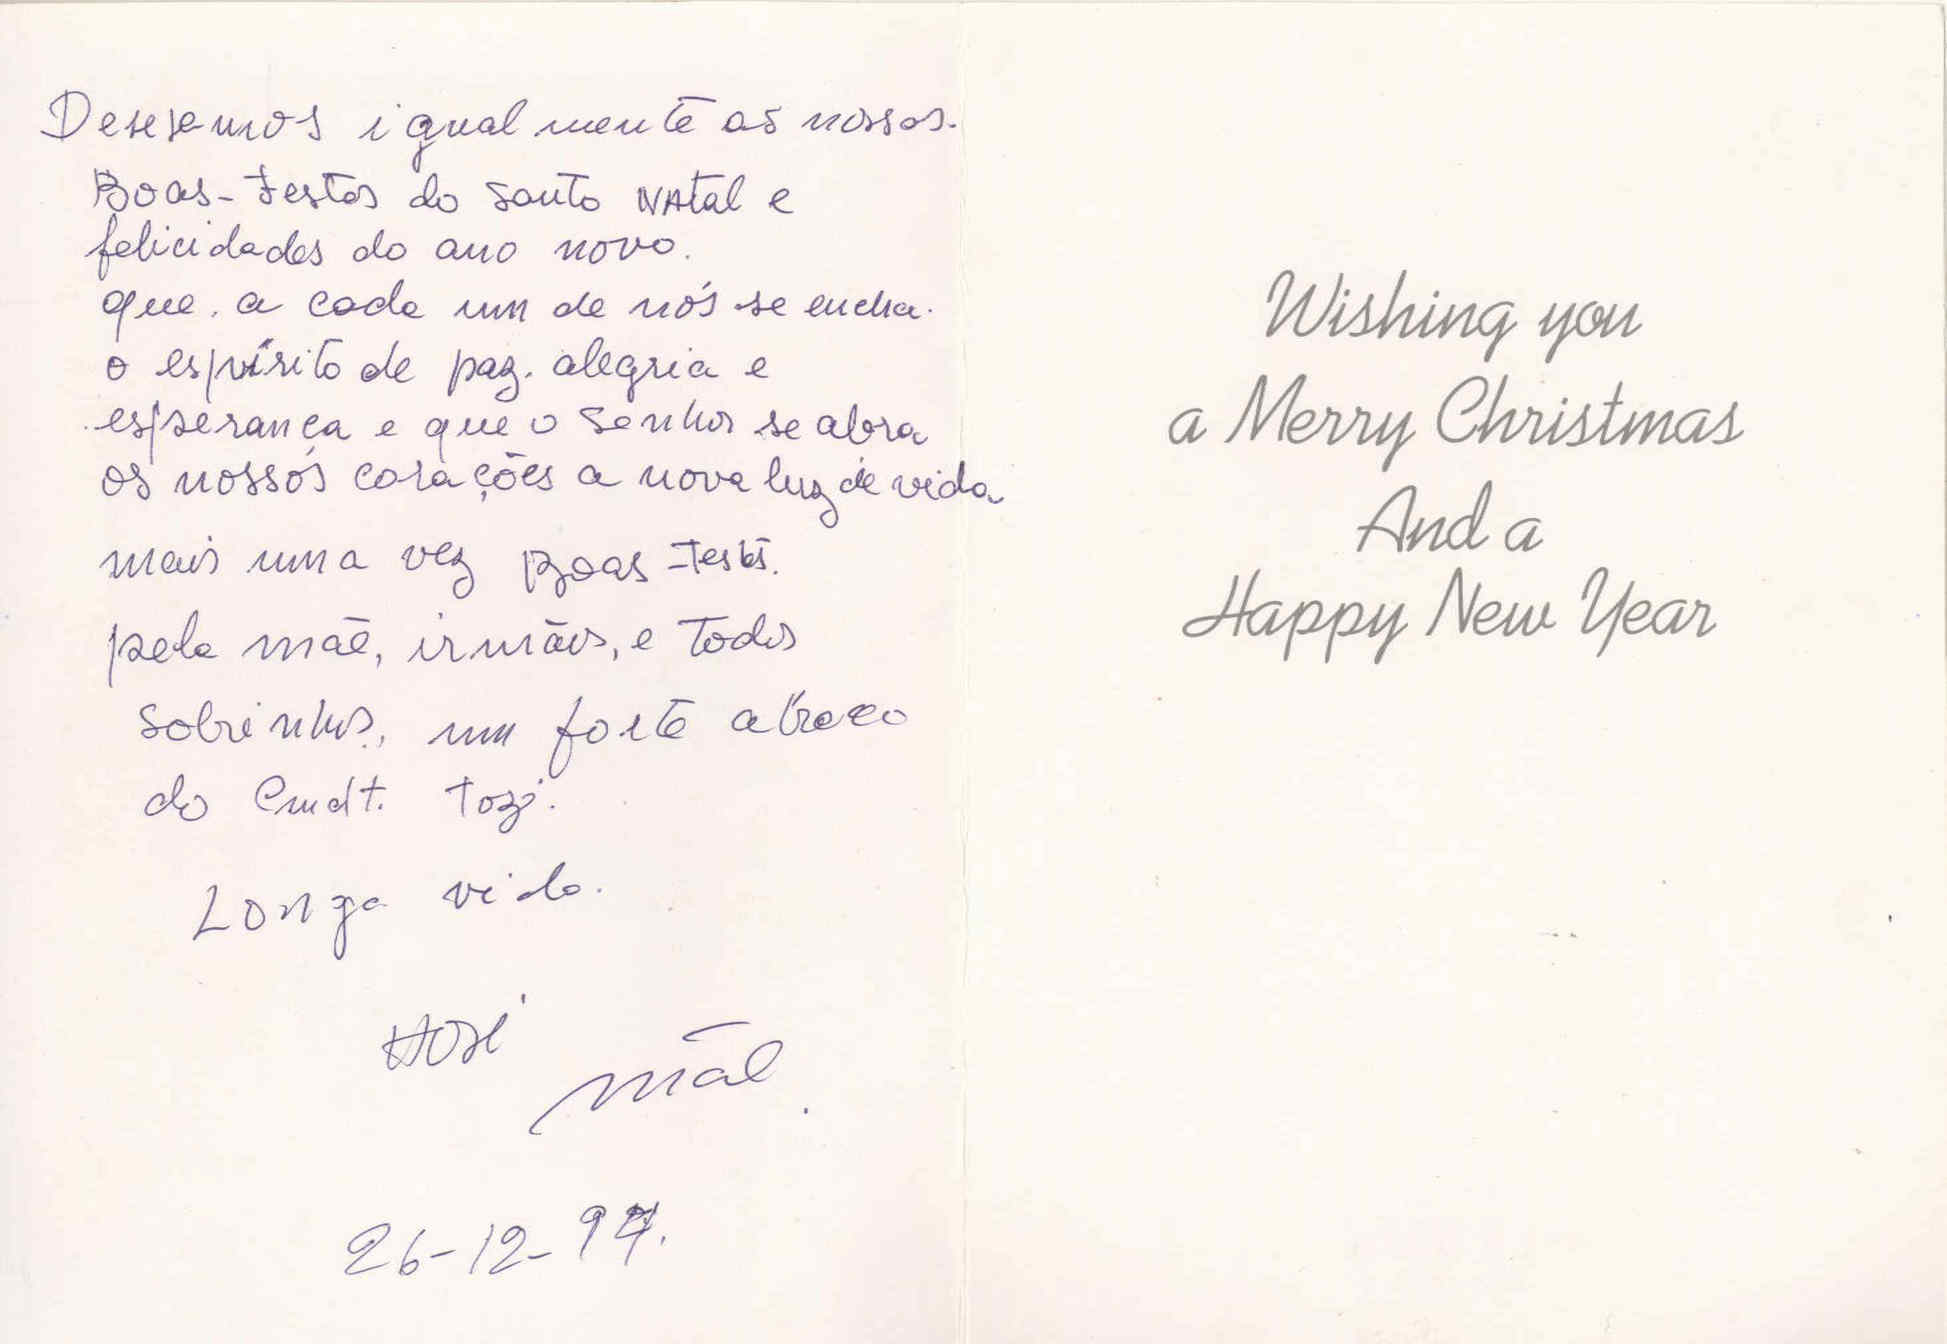 Desejamos igualmente as nossas
Boas-festas do santo NAtal e
felicidades do ano novo.
que a cada um de nós se encha
o espírito de paz. alegria e
esperança e que o senhor se abra
os nossós corações a nova luz de vida
mais uma vez Boas-festas.
pela mãe, irmãos, e todos
sobrinhos, um forte abraço
do Cmdt.
Longa vida.
mãe
26-12-97.
Wishing you
a Merry Christmas
And a
Happy New Year